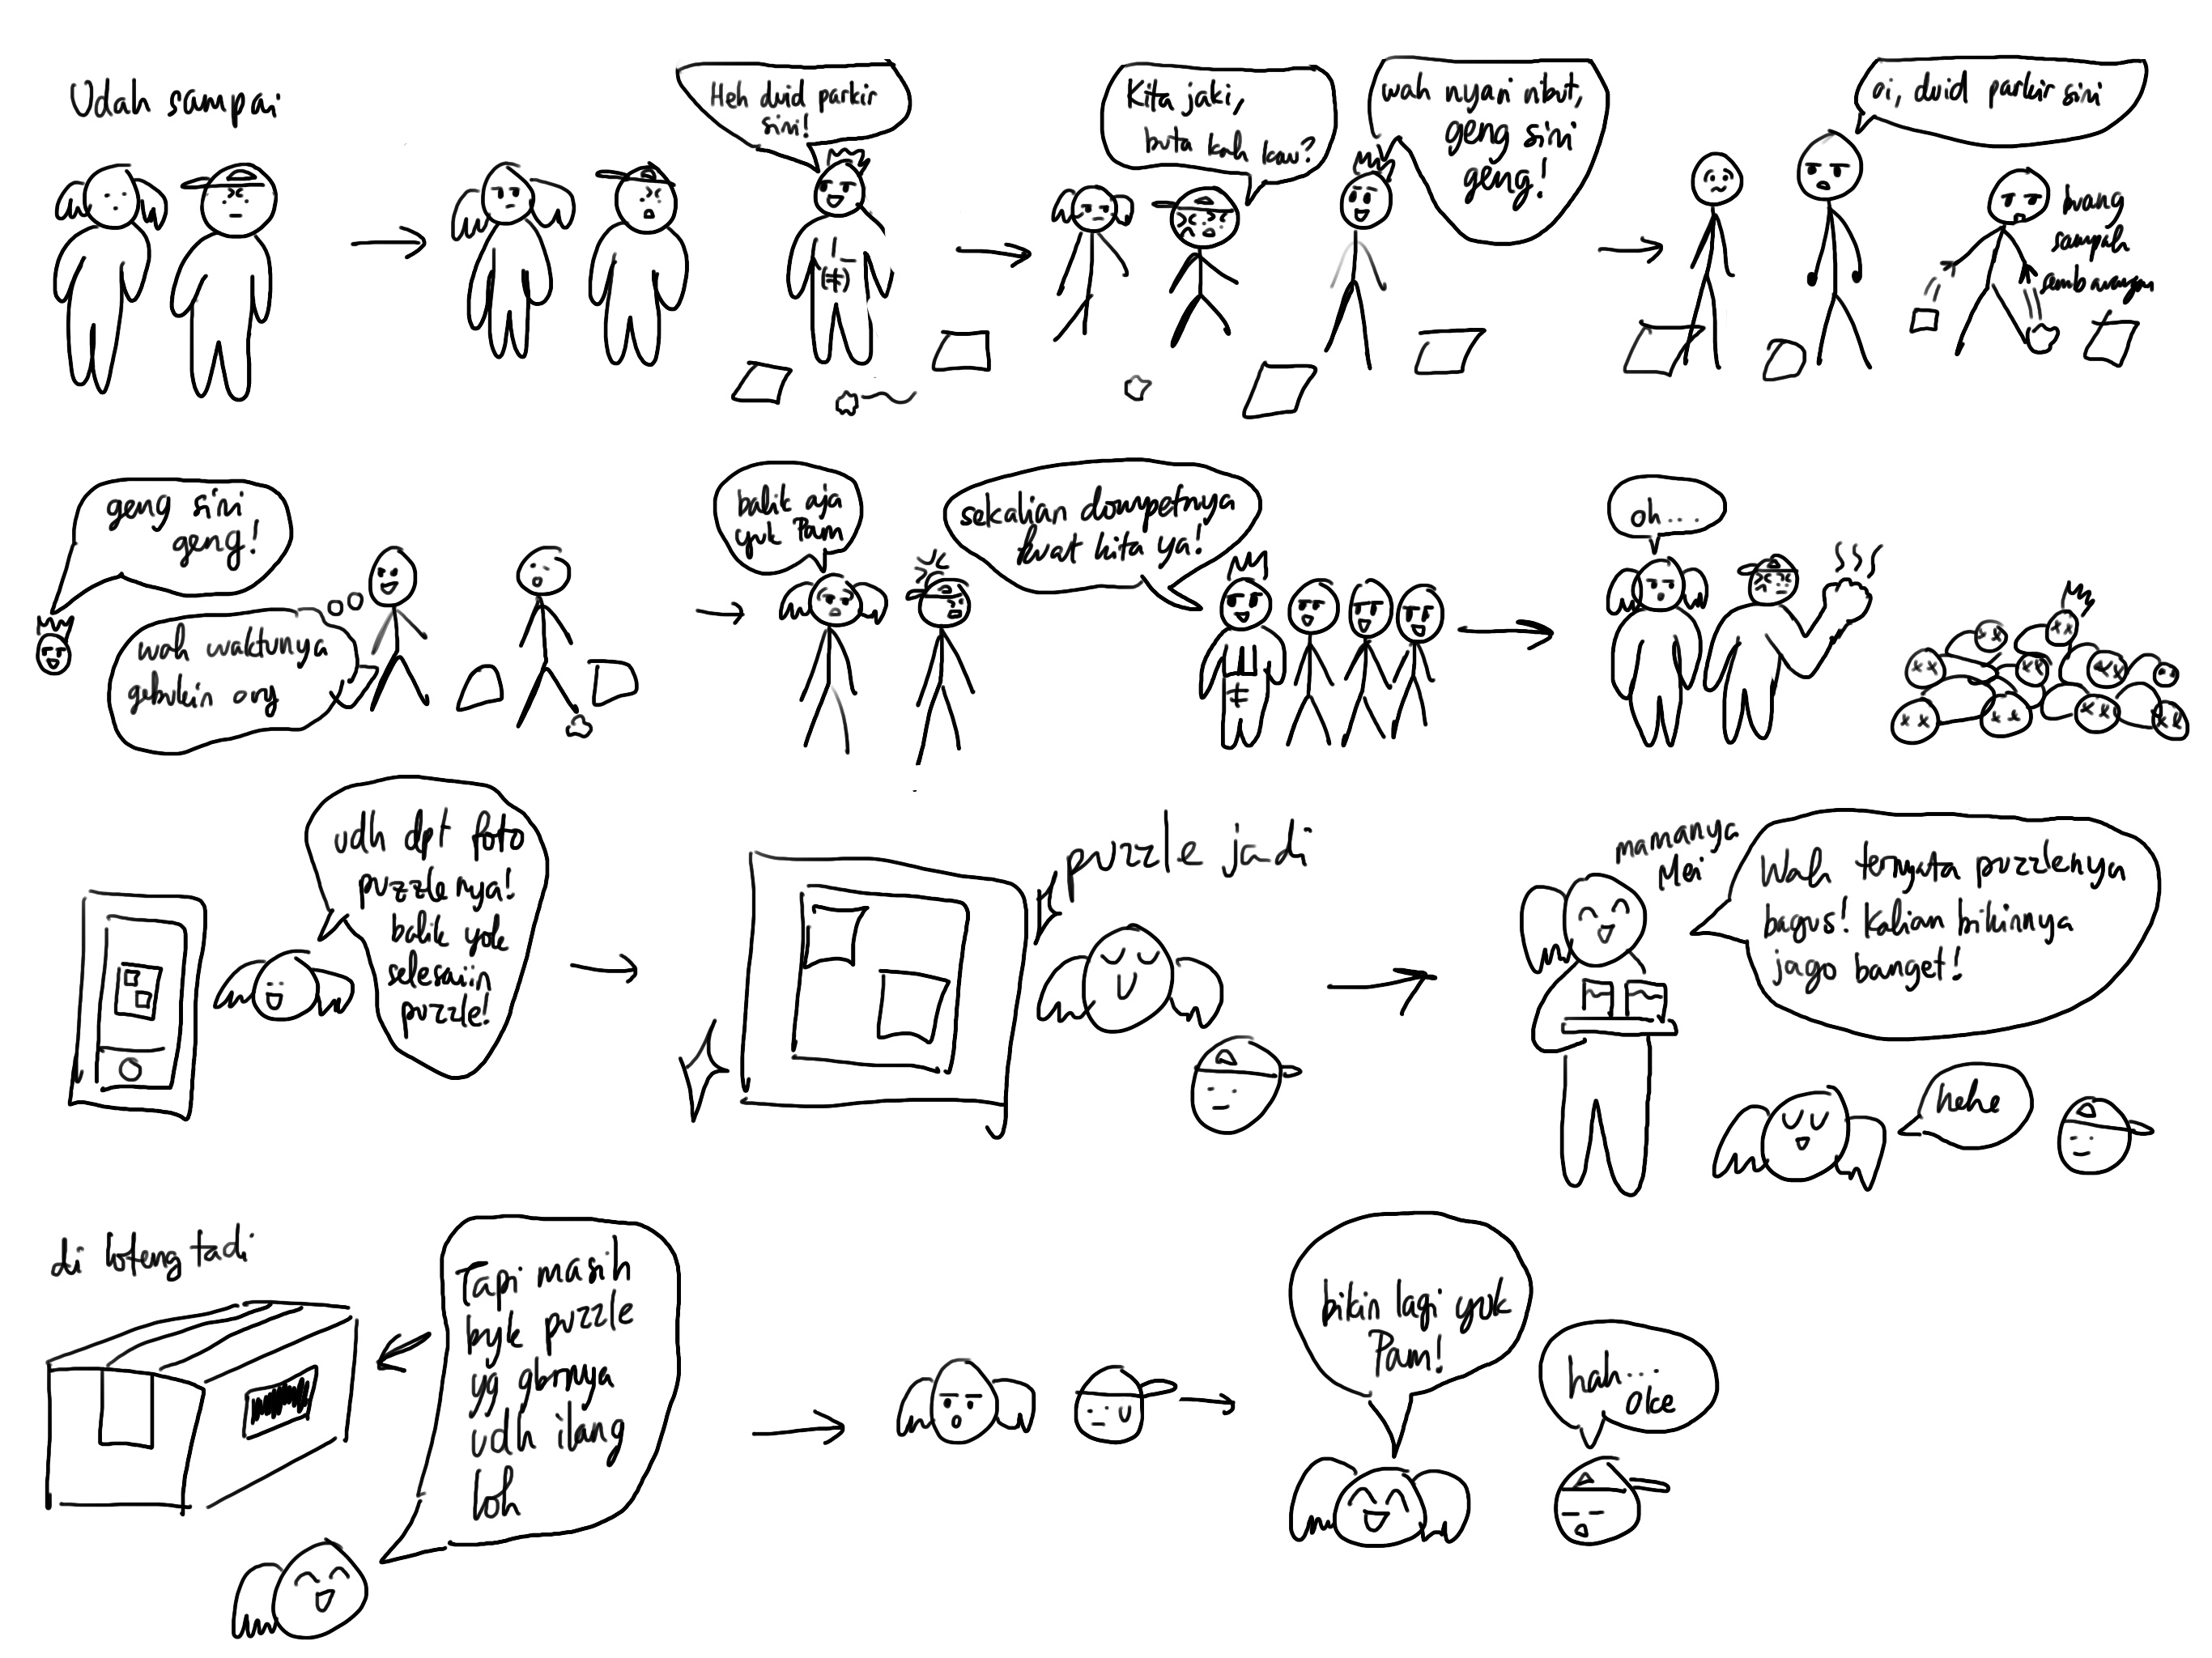 Udah sampai
Heh duid parkir
sini!
Kita jaki,
buta kah kau?
wah nyari ribut,
geng sini
geng!
oi, duid parkir sini
buang
sampah
sembarangan
geng sini
geng!
wah waktunya
gebukin org
balik aja
yuk Pam
sekalian dompetnya
buat kita ya!
oh...
udh dpt foto
puzzlenya!
balik yok
selesaiin
puzzle!
puzzle jadi
mamanya
Mei
Wah ternyata puzzlenya
bagus! Kalian bikinnya
jago banget!
hehe
di loteng tadi
Tapi masih
byk puzzle
yg gbrnya
udh ilang
loh
bikin lagi yuk
Pam!
hah...
oke